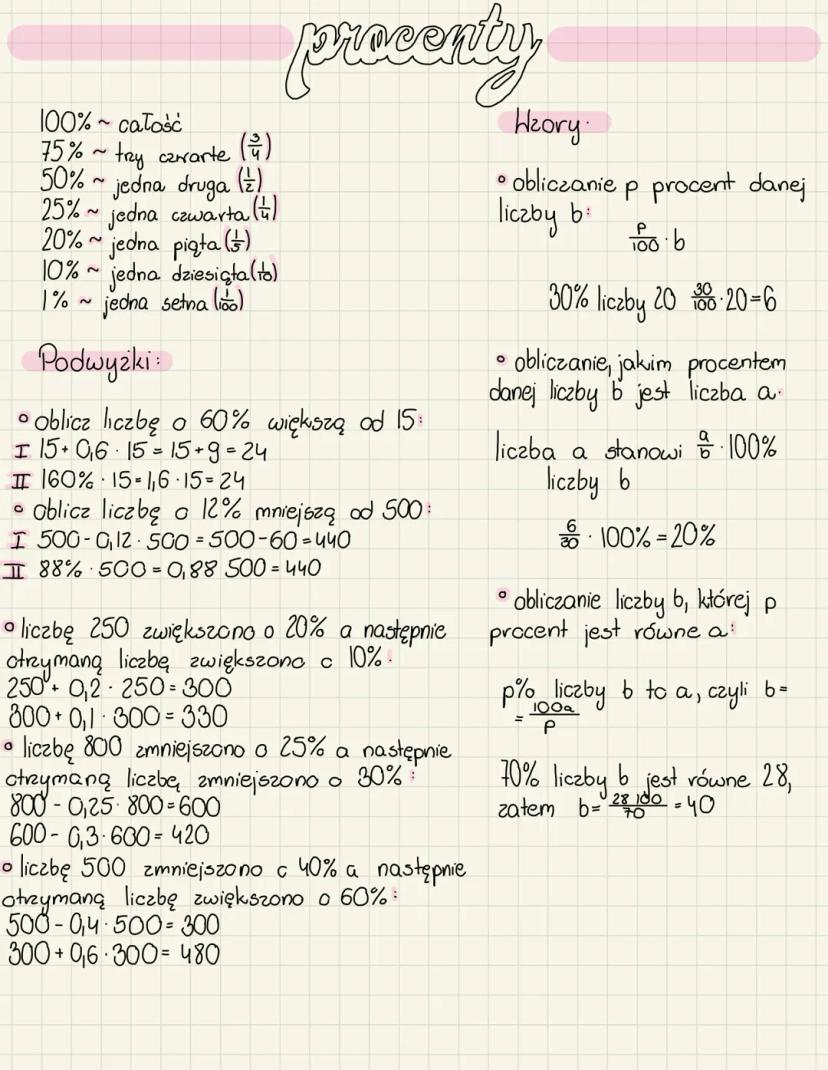 procenty
100% ~ całość
75% ~ trzy czwarte (3/4)
50% ~ jedna druga (1/2)
25% ~ jedna czwarta (1/4)
20% ~ jedna piąta (1/5)
10% ~ jedna dziesiąta (1/10)
1% ~ jedna setna (1/100)
Podwyżki:
° oblicz liczbę o 60% większą od 15:
I 15 + 0,6 · 15 = 15 + 9 = 24
II 160% · 15 = 1,6 · 15 = 24
° oblicz liczbę o 12% mniejszą od 500:
I 500 - 0,12 · 500 = 500 - 60 = 440
II 88% · 500 = 0,88 500 = 440
° liczbę 250 zwiększono o 20% a następnie
otrzymaną liczbę zwiększono o 10%:
250 + 0,2 · 250 = 300
300 + 0,1 · 300 = 330
° liczbę 800 zmniejszono o 25% a następnie
otrzymaną liczbę zmniejszono o 30%:
800 - 0,25 · 800 = 600
600 - 0,3 · 600 = 420
° liczbę 500 zmniejszono o 40% a następnie
otrzymaną liczbę zwiększono o 60%:
500 - 0,4 · 500 = 300
300 + 0,6 · 300 = 480
Wzory:
° obliczanie p procent danej
liczby b:
p/100 · b
30% liczby 20 30/100 · 20 = 6
° obliczanie, jakim procentem
danej liczby b jest liczba a:
liczba a stanowi a/b · 100%
liczby b
6/30 · 100% = 20%
° obliczanie liczby b, której p
procent jest równe a:
p% liczby b to a, czyli b =
= 100a/p
70% liczby b jest równe 28,
zatem b = 28·100/70 = 40